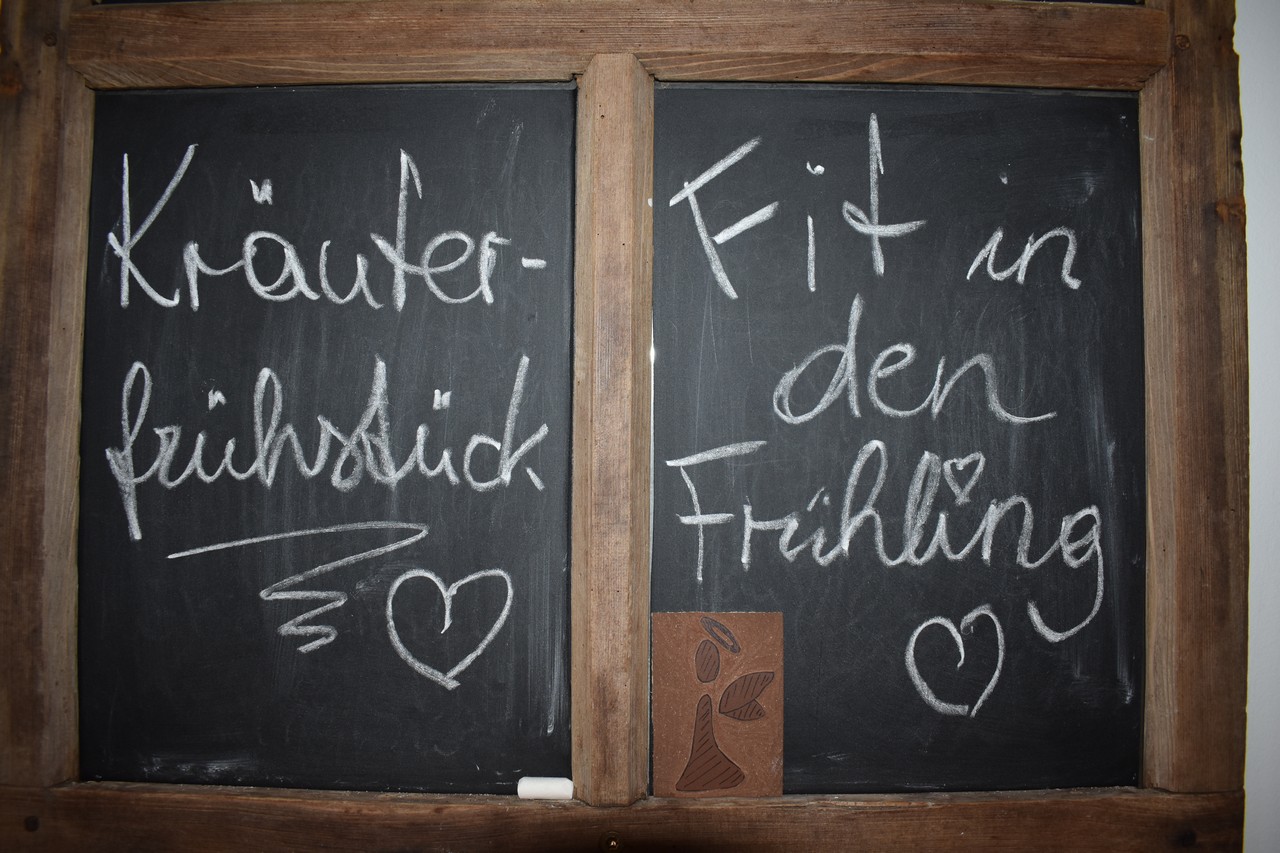 Kräuter-
frühstück
Fit in
den
Frühling